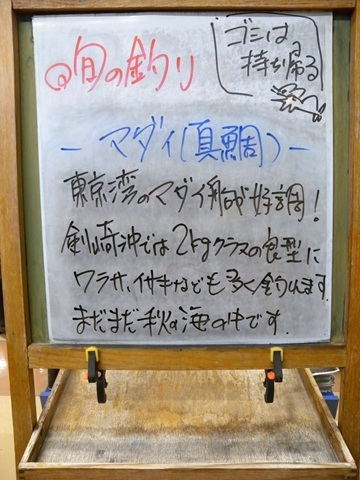 ◎旬の釣り
ゴミは
持ち帰る
－マダイ(真鯛)－
東京湾のマダイ船が好調!
剣崎沖では2kgクラスの良型に
ワラサ、イサキなども多く釣れます.
まだまだ秋の海の中です.